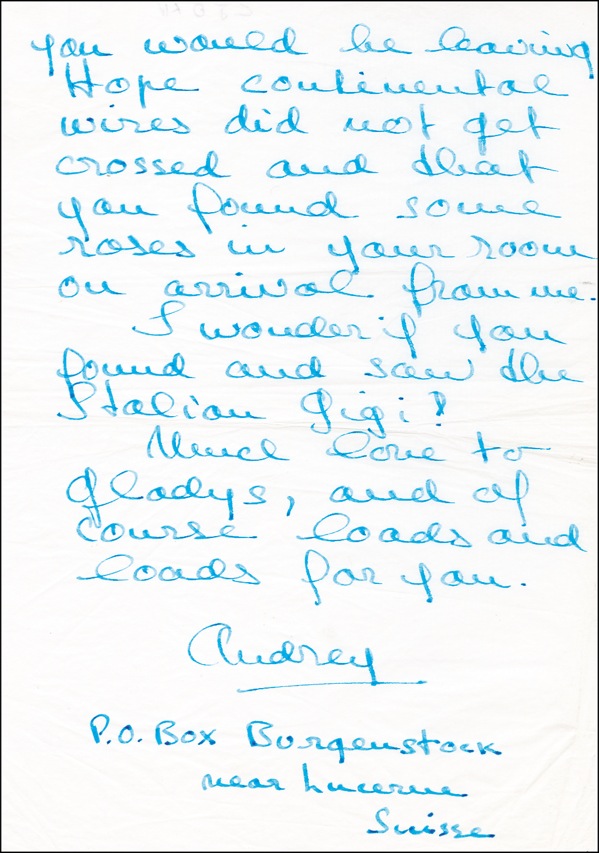 you would be leaving
Hope continental
wires did not get
crossed and that
you found some
roses in your room
on arrival from me.
I wonder if you
found and saw the
Italian Gigi?
Much love to
Gladys, and of
course loads and
loads for you.
Audrey
P.O. Box Burgenstock
near Lucerne
Suisse